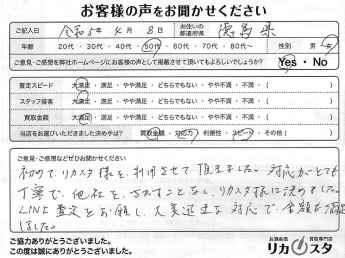 お客様の声をお聞かせください
ご記入日 令和5年 4月 8日 お住いの都道府県 徳島県
年齢 20代・30代・40代・50代・60代・70代・80代〜 性別 男・女
ご意見・ご感想を弊社ホームページにお客様の声として掲載させて頂いてもよろしいでしょうか? Yes・No
査定スピード 大満足・満足・やや満足・どちらでもない・やや不満・不満・( )
スタッフ接客 大満足・満足・やや満足・どちらでもない・やや不満・不満・( )
買取金額 大満足・満足・やや満足・どちらでもない・やや不満・不満・( )
当店をお選びいただきました決めては? 買取金額・対応力・利便性・スピード・その他( )
ご意見・ご感想などぜひお聞かせください
初めてリカスタ様を利用させて頂きました。対応がとても
丁寧で、他社を、さがすことなく、リカスタ様に決めました。
LINE査定をお願し、大変迅速な対応で、金額も満足
しました。
ご協力ありがとうございました。
この度は誠にありがとうございました。
お酒高価 買取専門店
リカスタ